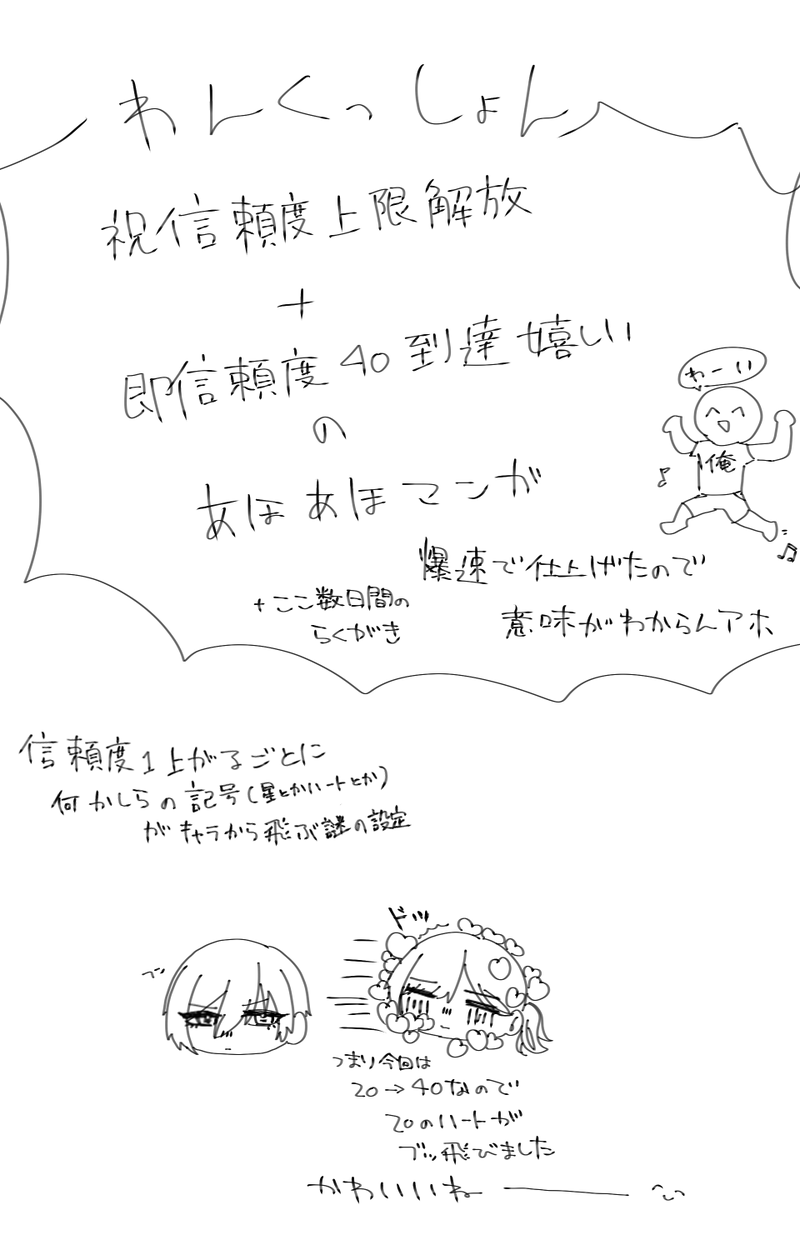 わんくっしょん
祝信頼度上限解放
+
即信頼度40到達嬉しい
の
あほあほマンガ
わーい
俺
爆速で仕上げたので
意味がわからんアホ
+ここ数日間の
らくがき
信頼度1上がるごとに
何かしらの記号(星とかハートとか)
がキャラから飛ぶ謎の設定
ドッ
つまり今回は
20→40なので
20のハートが
ブッ飛びました
かわいいね